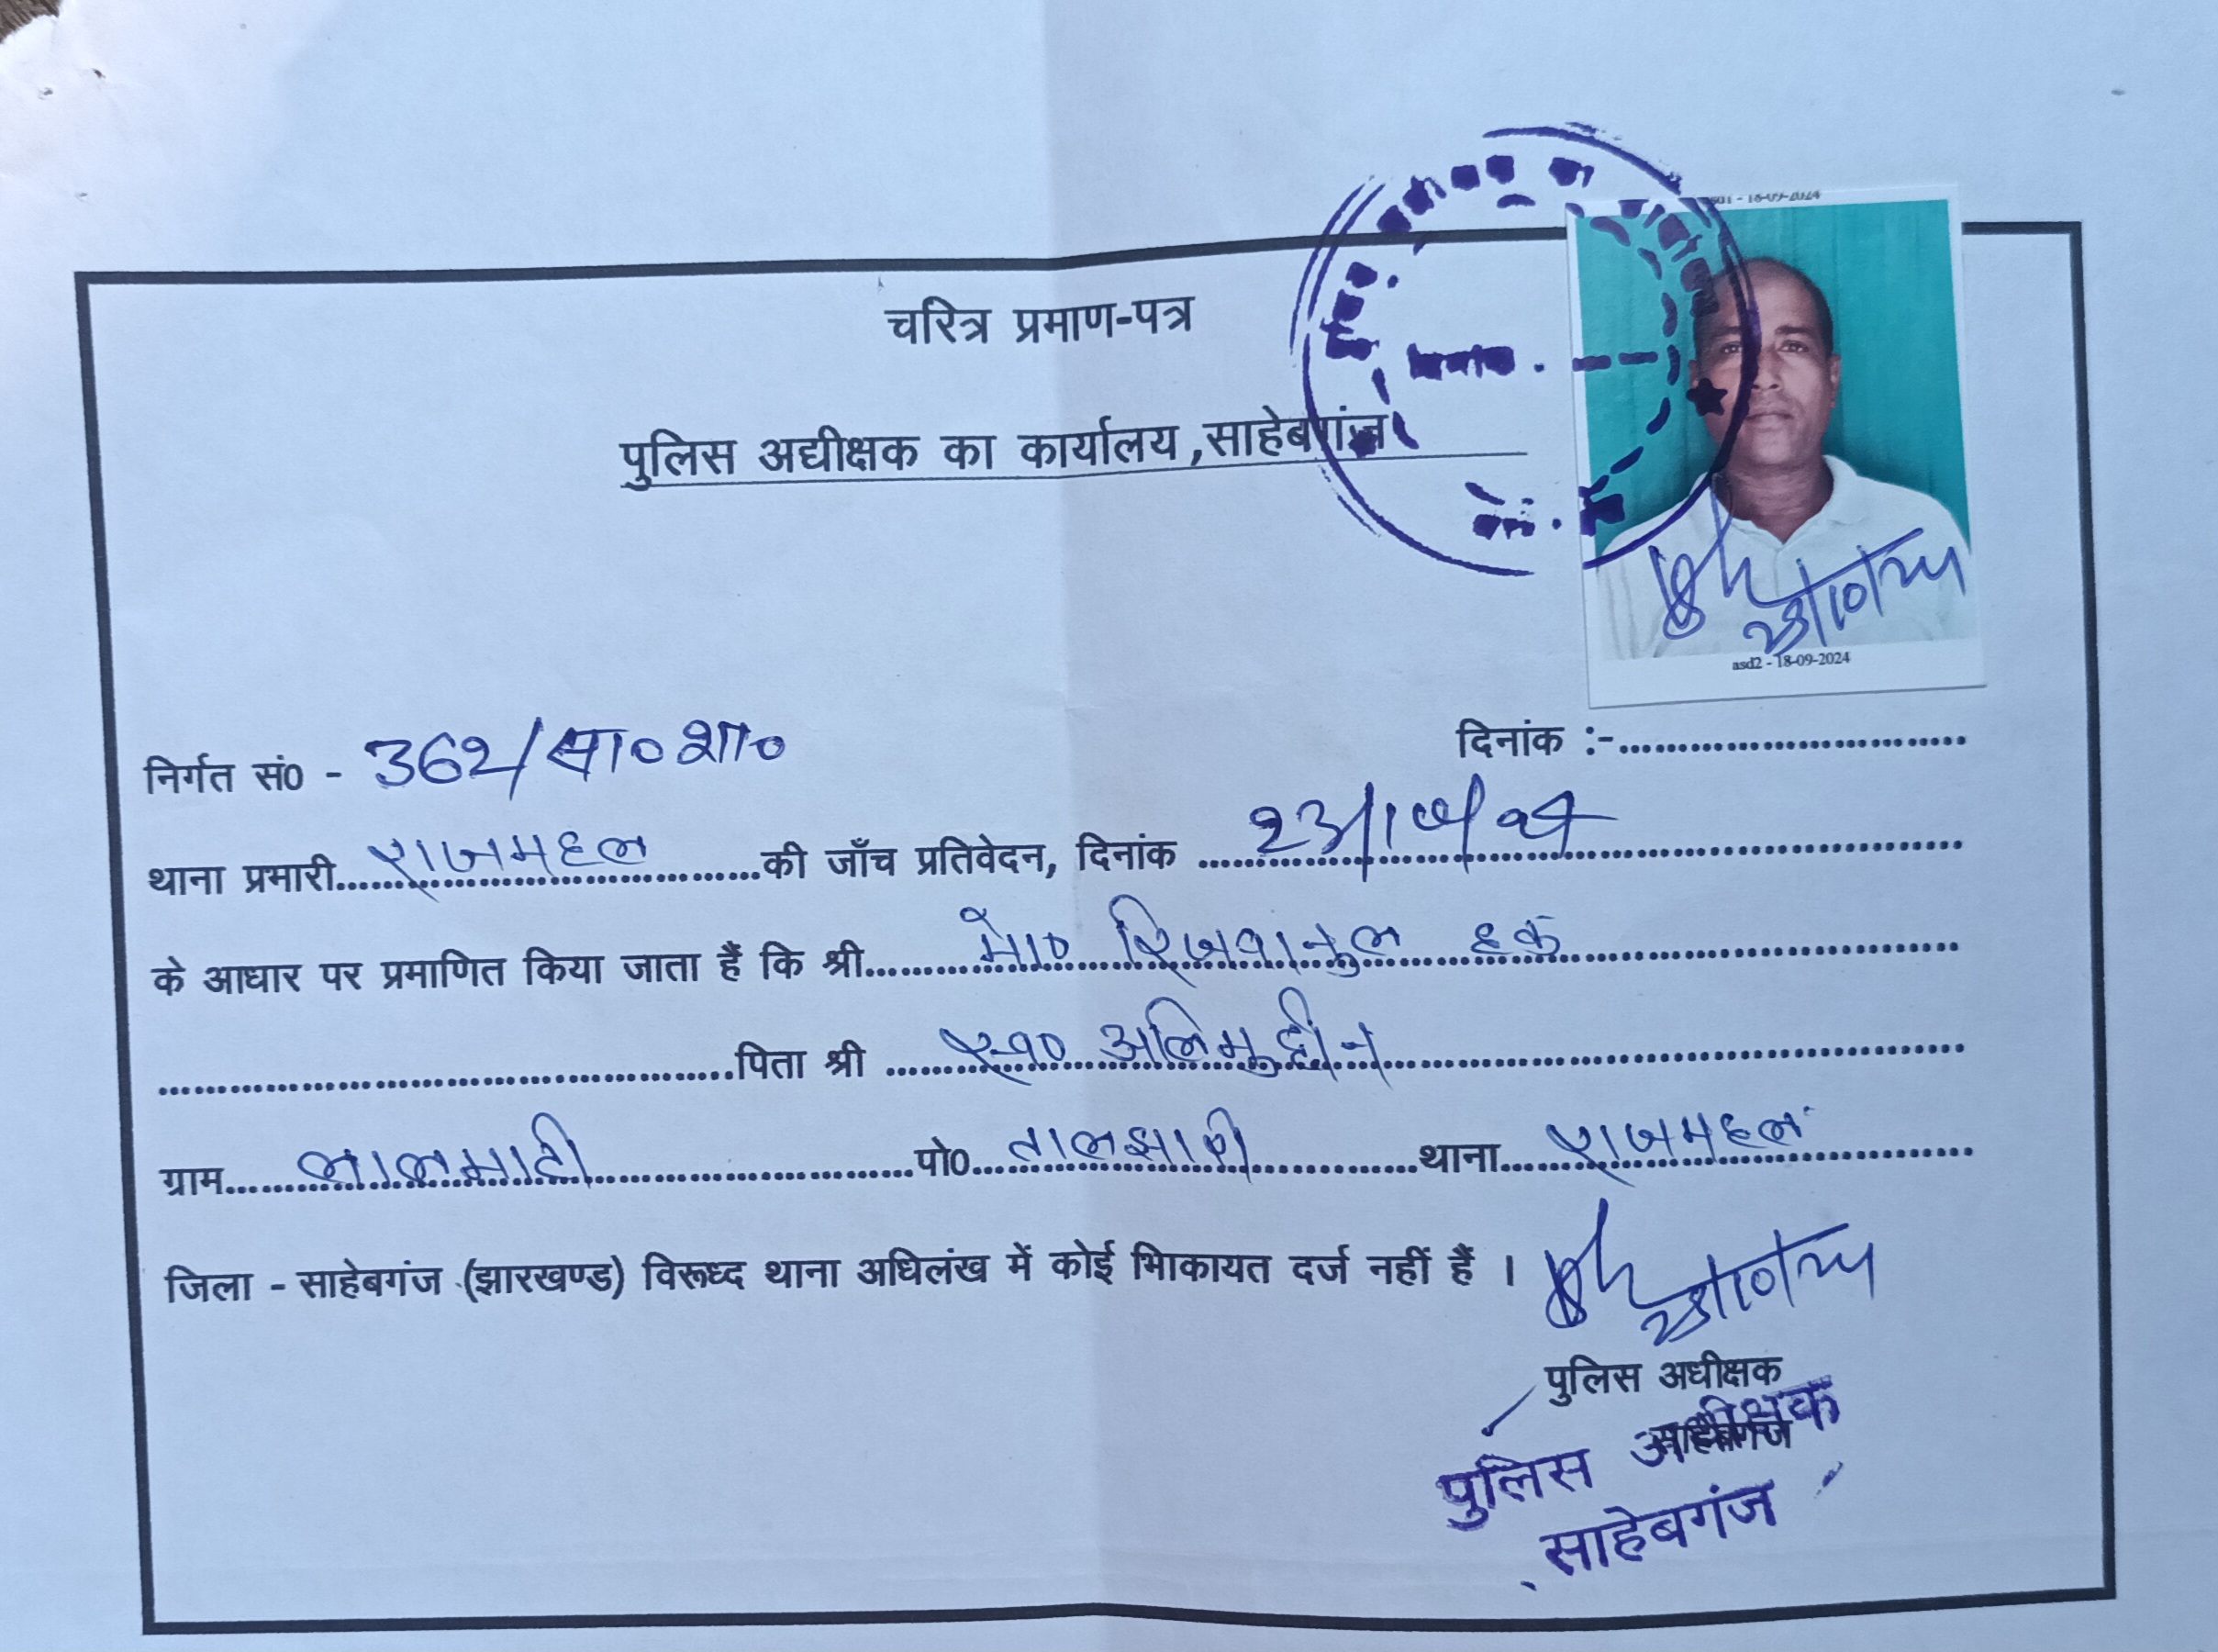 चरित्र प्रमाण-पत्र
पुलिस अद्यीक्षक का कार्यालय,साहेबगंज
asd2 - 18-09-2024
निर्गत सं0 - 362/सा०शा०
दिनांक :-..............................
थाना प्रमारी....राजमहल....की जाँच प्रतिवेदन, दिनांक ....
के आधार पर प्रमाणित किया जाता हैं कि श्री....मो० रिजवानुल हक....
....पिता श्री ....स्व० अलिमुद्दीन....
ग्राम....लालमाटी....पो0....तालझारी....थाना....राजमहल....
जिला - साहेबगंज (झारखण्ड) विरूध्द थाना अधिलंख में कोई भिाकायत दर्ज नहीं हैं ।
पुलिस अधीक्षक
साहेबगंज
पुलिस अधीक्षक
साहेबगंज